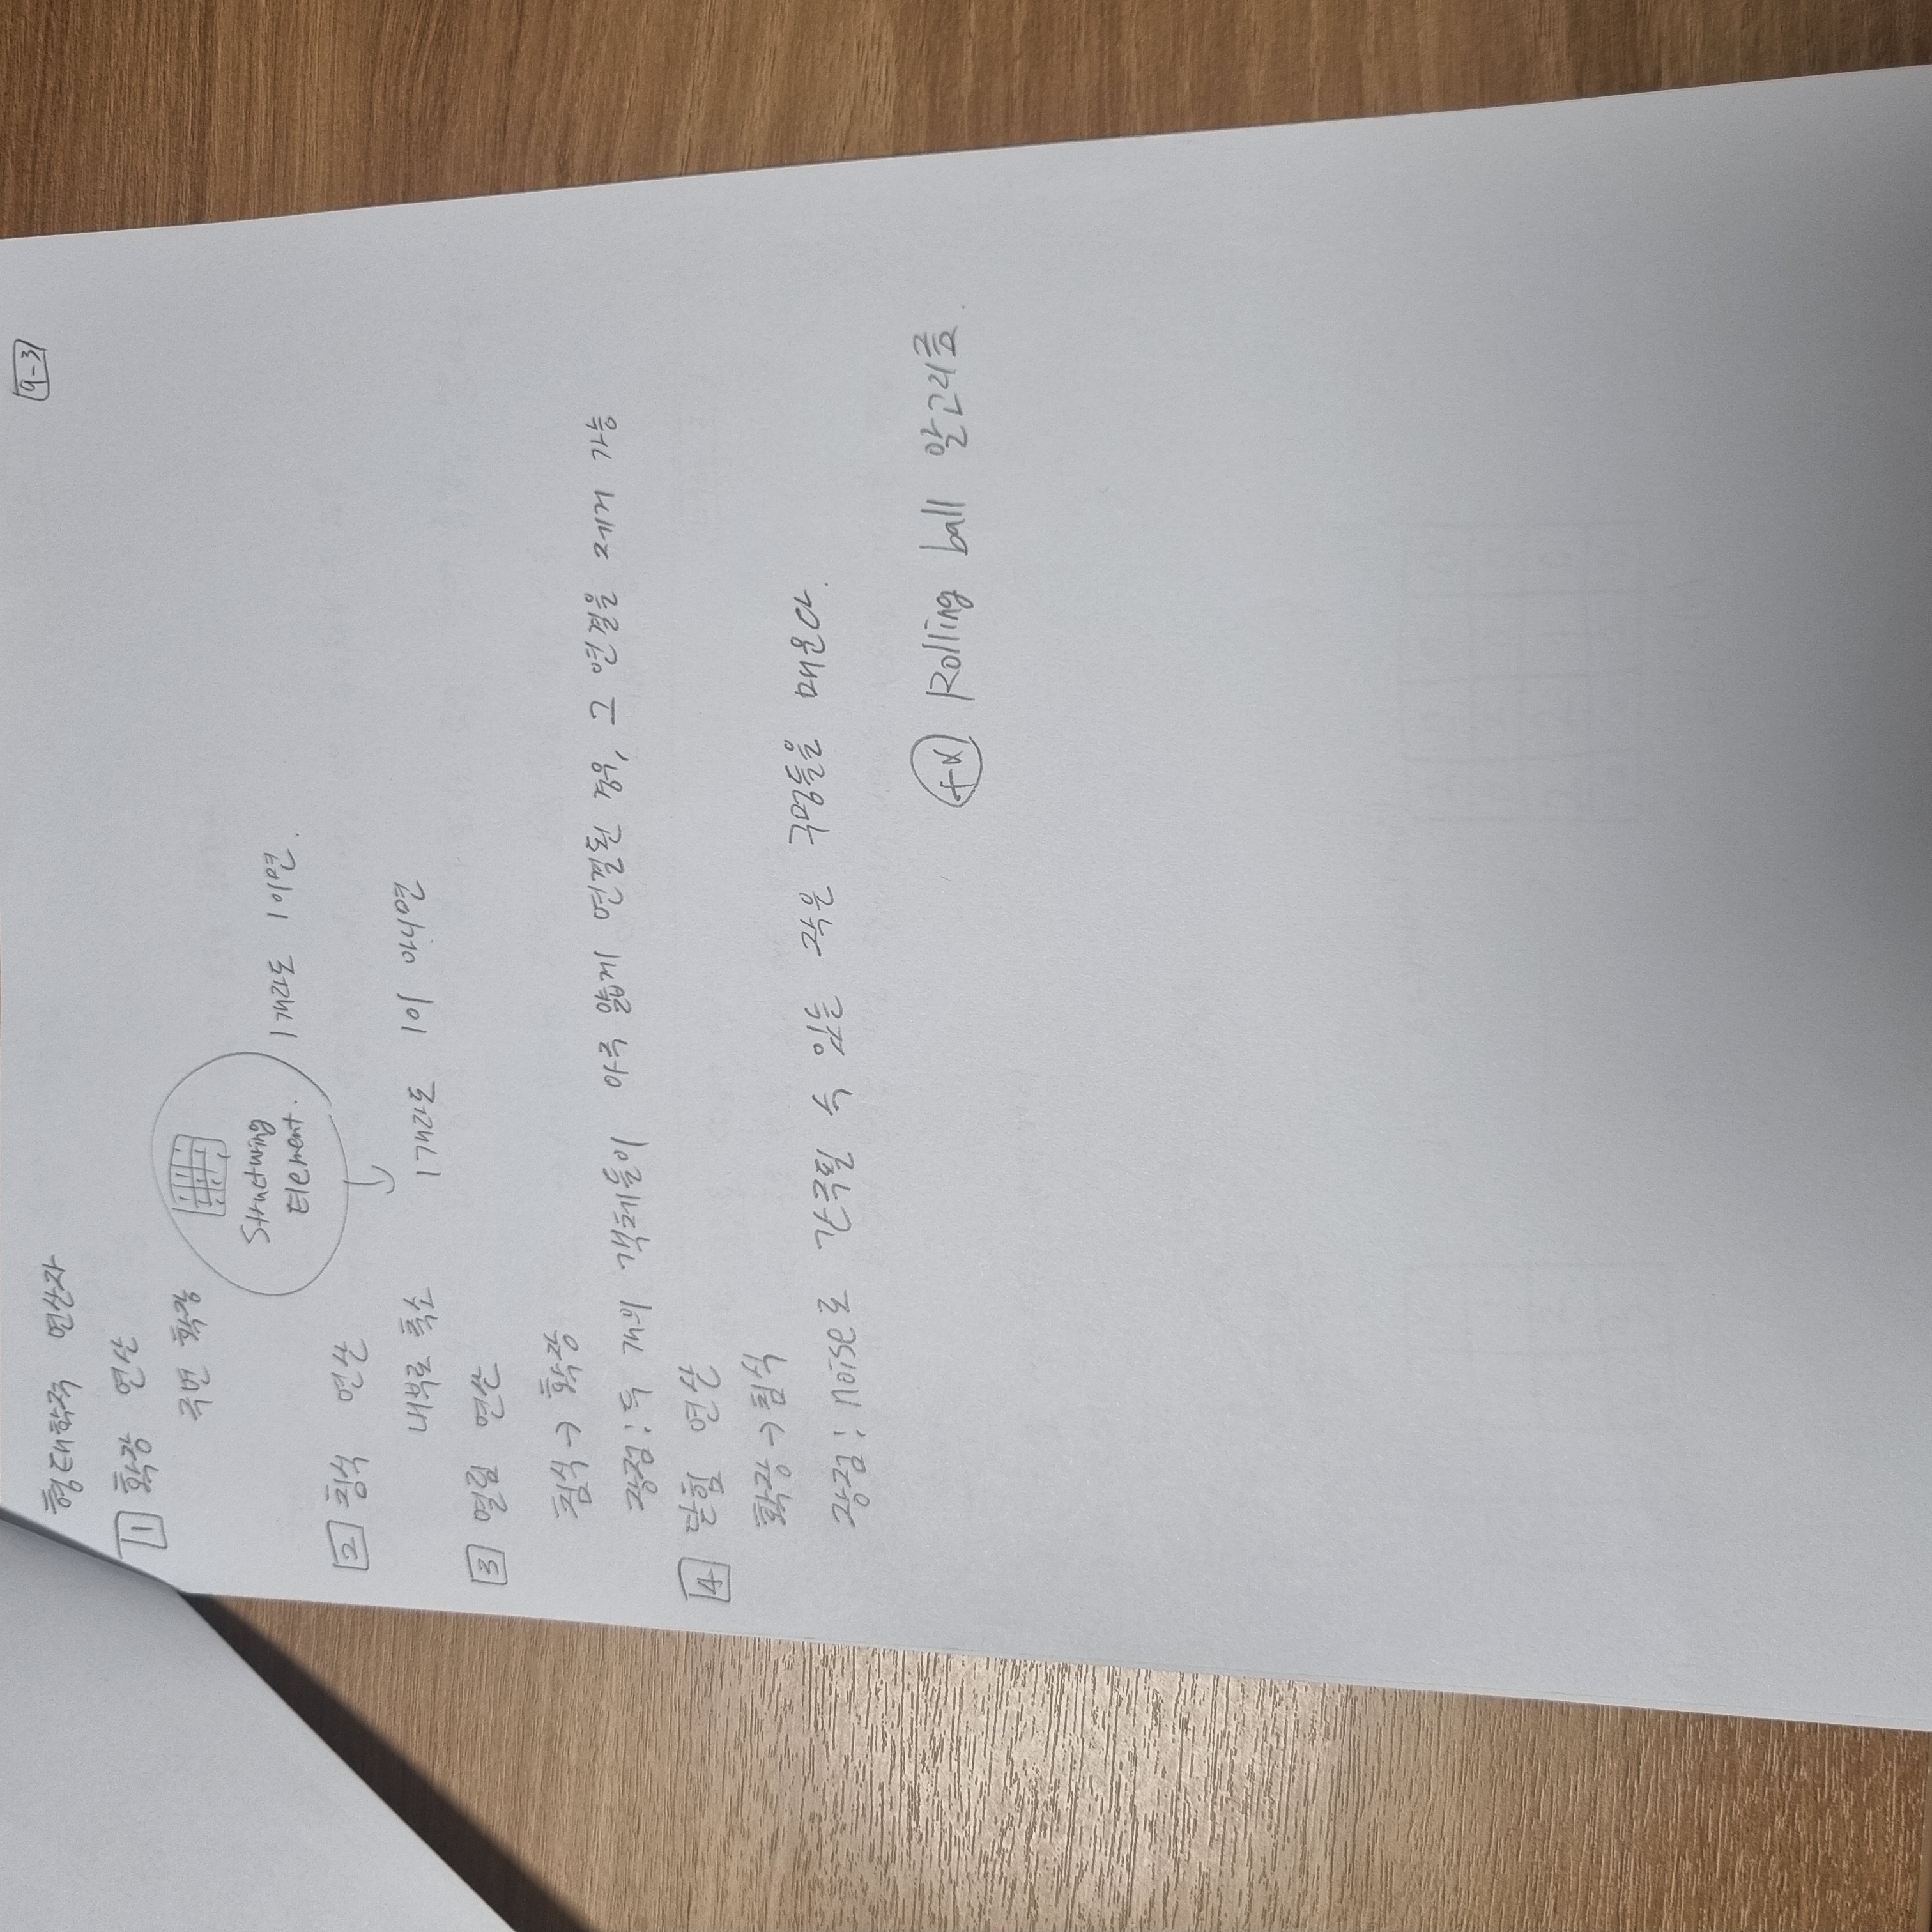 9-3
형태학적 연산자
1 확장 연산
주변 확장
Structuring
Element.
1개라도 1이면.
2 침식 연산
내부로 축소 1개라도 1이 아니면
3 열림 연산
침식 → 확장
장점 : 두 개의 객체들이 아주 얇게 연결된 경우, 그 연결을 제거 가능
4 닫힘 연산
확장 → 침식
장점 : noise로 간주될 수 있는 작은 구멍들을 메운다.
+α Rolling ball 알고리즘.